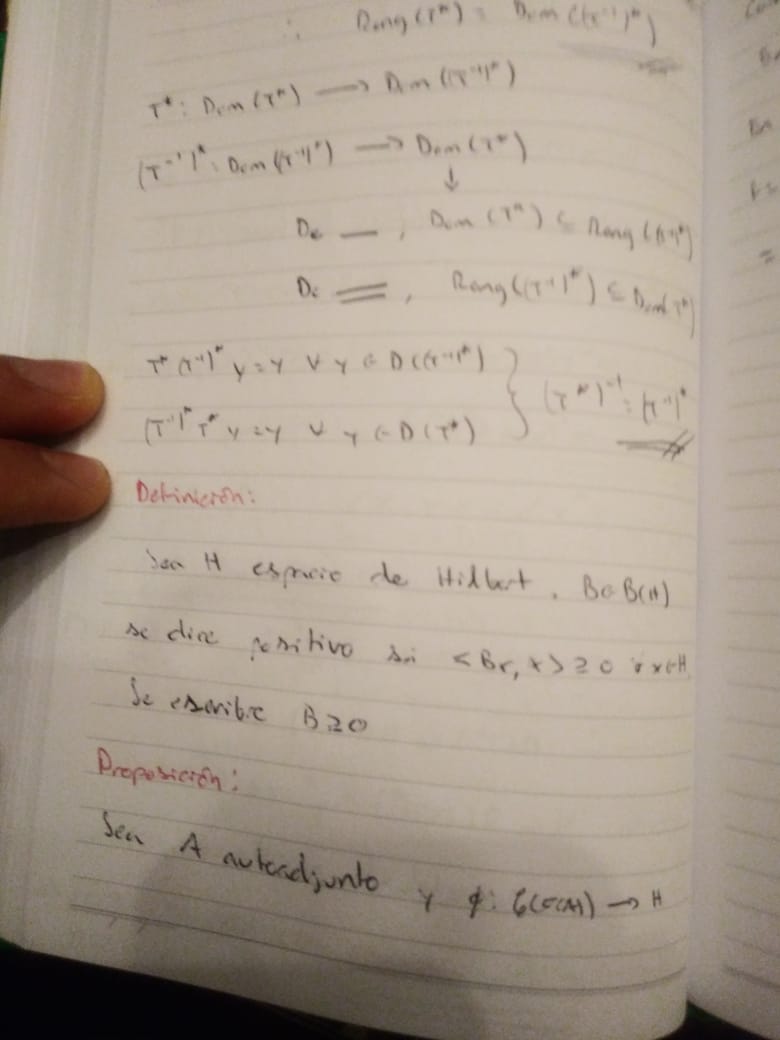 ∴ Rang(T*) = Dom((T⁻¹)*)
T* : Dom(T*) → Dom((T⁻¹)*)
(T⁻¹)* : Dom((T⁻¹)*) → Dom(T*)
↓
De —, Dom(T*) ⊆ Rang((T⁻¹)*)
De =, Rang((T⁻¹)*) ⊆ Dom(T*)
T*(T⁻¹)* y = y ∀ y ∈ D((T⁻¹)*)
(T⁻¹)* T* y = y ∀ y ∈ D(T*) } (T*)⁻¹ = (T⁻¹)*
Definición:
Sea H espacio de Hilbert. B ∈ B(H)
se dice positivo si <Bx, x> ≥ 0 ∀ x ∈ H.
Se escribe B ≥ 0
Proposición:
Sea A autoadjunto y φ: C(σ(A)) → H